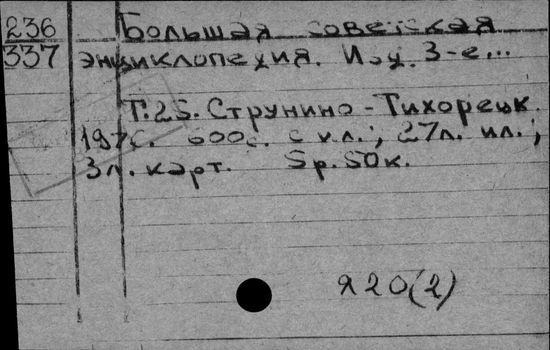 236 Большая советская
337 энциклопедия. Изд. 3-е...
Т.25. Струнино-Тихорецк.
1976. 600с. с ил.; 27л. ил.;
3л. карт. 5р.50к.
Я20(2)